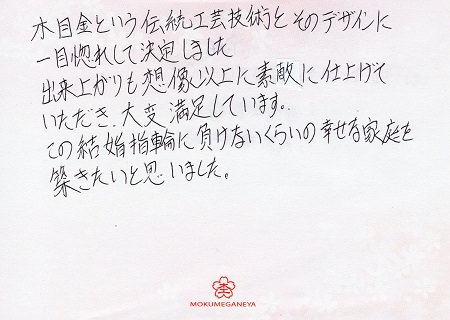 木目金という伝統工芸技術とそのデザインに
一目惚れして決定しました
出来上がりも想像以上に素敵に仕上げて
いただき、大変満足しています。
この結婚指輪に負けないくらいの幸せな家庭を
築きたいと思いました。
MOKUMEGANEYA